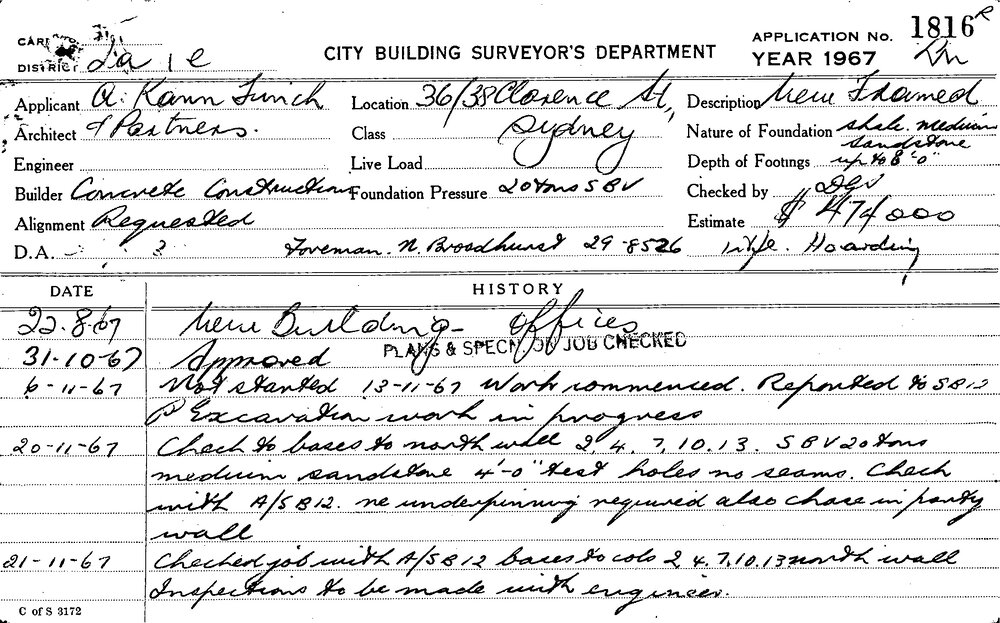 CARD
DISTRICT
CITY BUILDING SURVEYOR'S DEPARTMENT
APPLICATION No. 1816 R
YEAR 1967
Applicant A. Kann Finch
Location 36/38 Clarence St,
Description New Framed
Architect & Partners.
Class Sydney
Nature of Foundation Shale. medium sandstone
Engineer
Live Load
Depth of Footings up to 8'-0"
Builder Concrete Constructions
Foundation Pressure 20 tons SBV
Checked by
Alignment Requested
Estimate $ 474,000
D.A. ?
Foreman. N. Broadhurst 29-8526
Hoarding
DATE
HISTORY
22.8.67 New Building - Offices
31-10-67 Approved PLANS & SPECN. ON JOB CHECKED
6-11-67 Not started 13-11-67 Work commenced. Reported to SB12
Excavation work in progress
20-11-67 Check to bases to north wall 2, 4, 7, 10. 13. SBV 20 tons
medium sandstone 4'-0" test holes no seams. Check
with A/SB12. re underpinning required also chase in party
wall
21-11-67 Checked job with A/SB12 bases to cols 2 4. 7. 10. 13 north wall
Inspections to be made with engineer.
C of S 3172